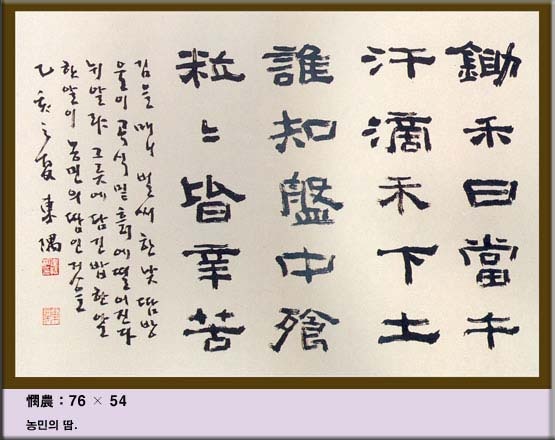 鋤禾日當午
汗滴禾下土
誰知盤中飱
粒〻皆辛苦
김을 매니 벌써 한낮 땀방
울이 곡식 밑 흙에 떨어진다
뉘 알랴 그릇에 담긴 밥 한 알
한 알이 농민의 땀인 것을
乙亥之夏 東隅
憫農 : 76 × 54
농민의 땀.